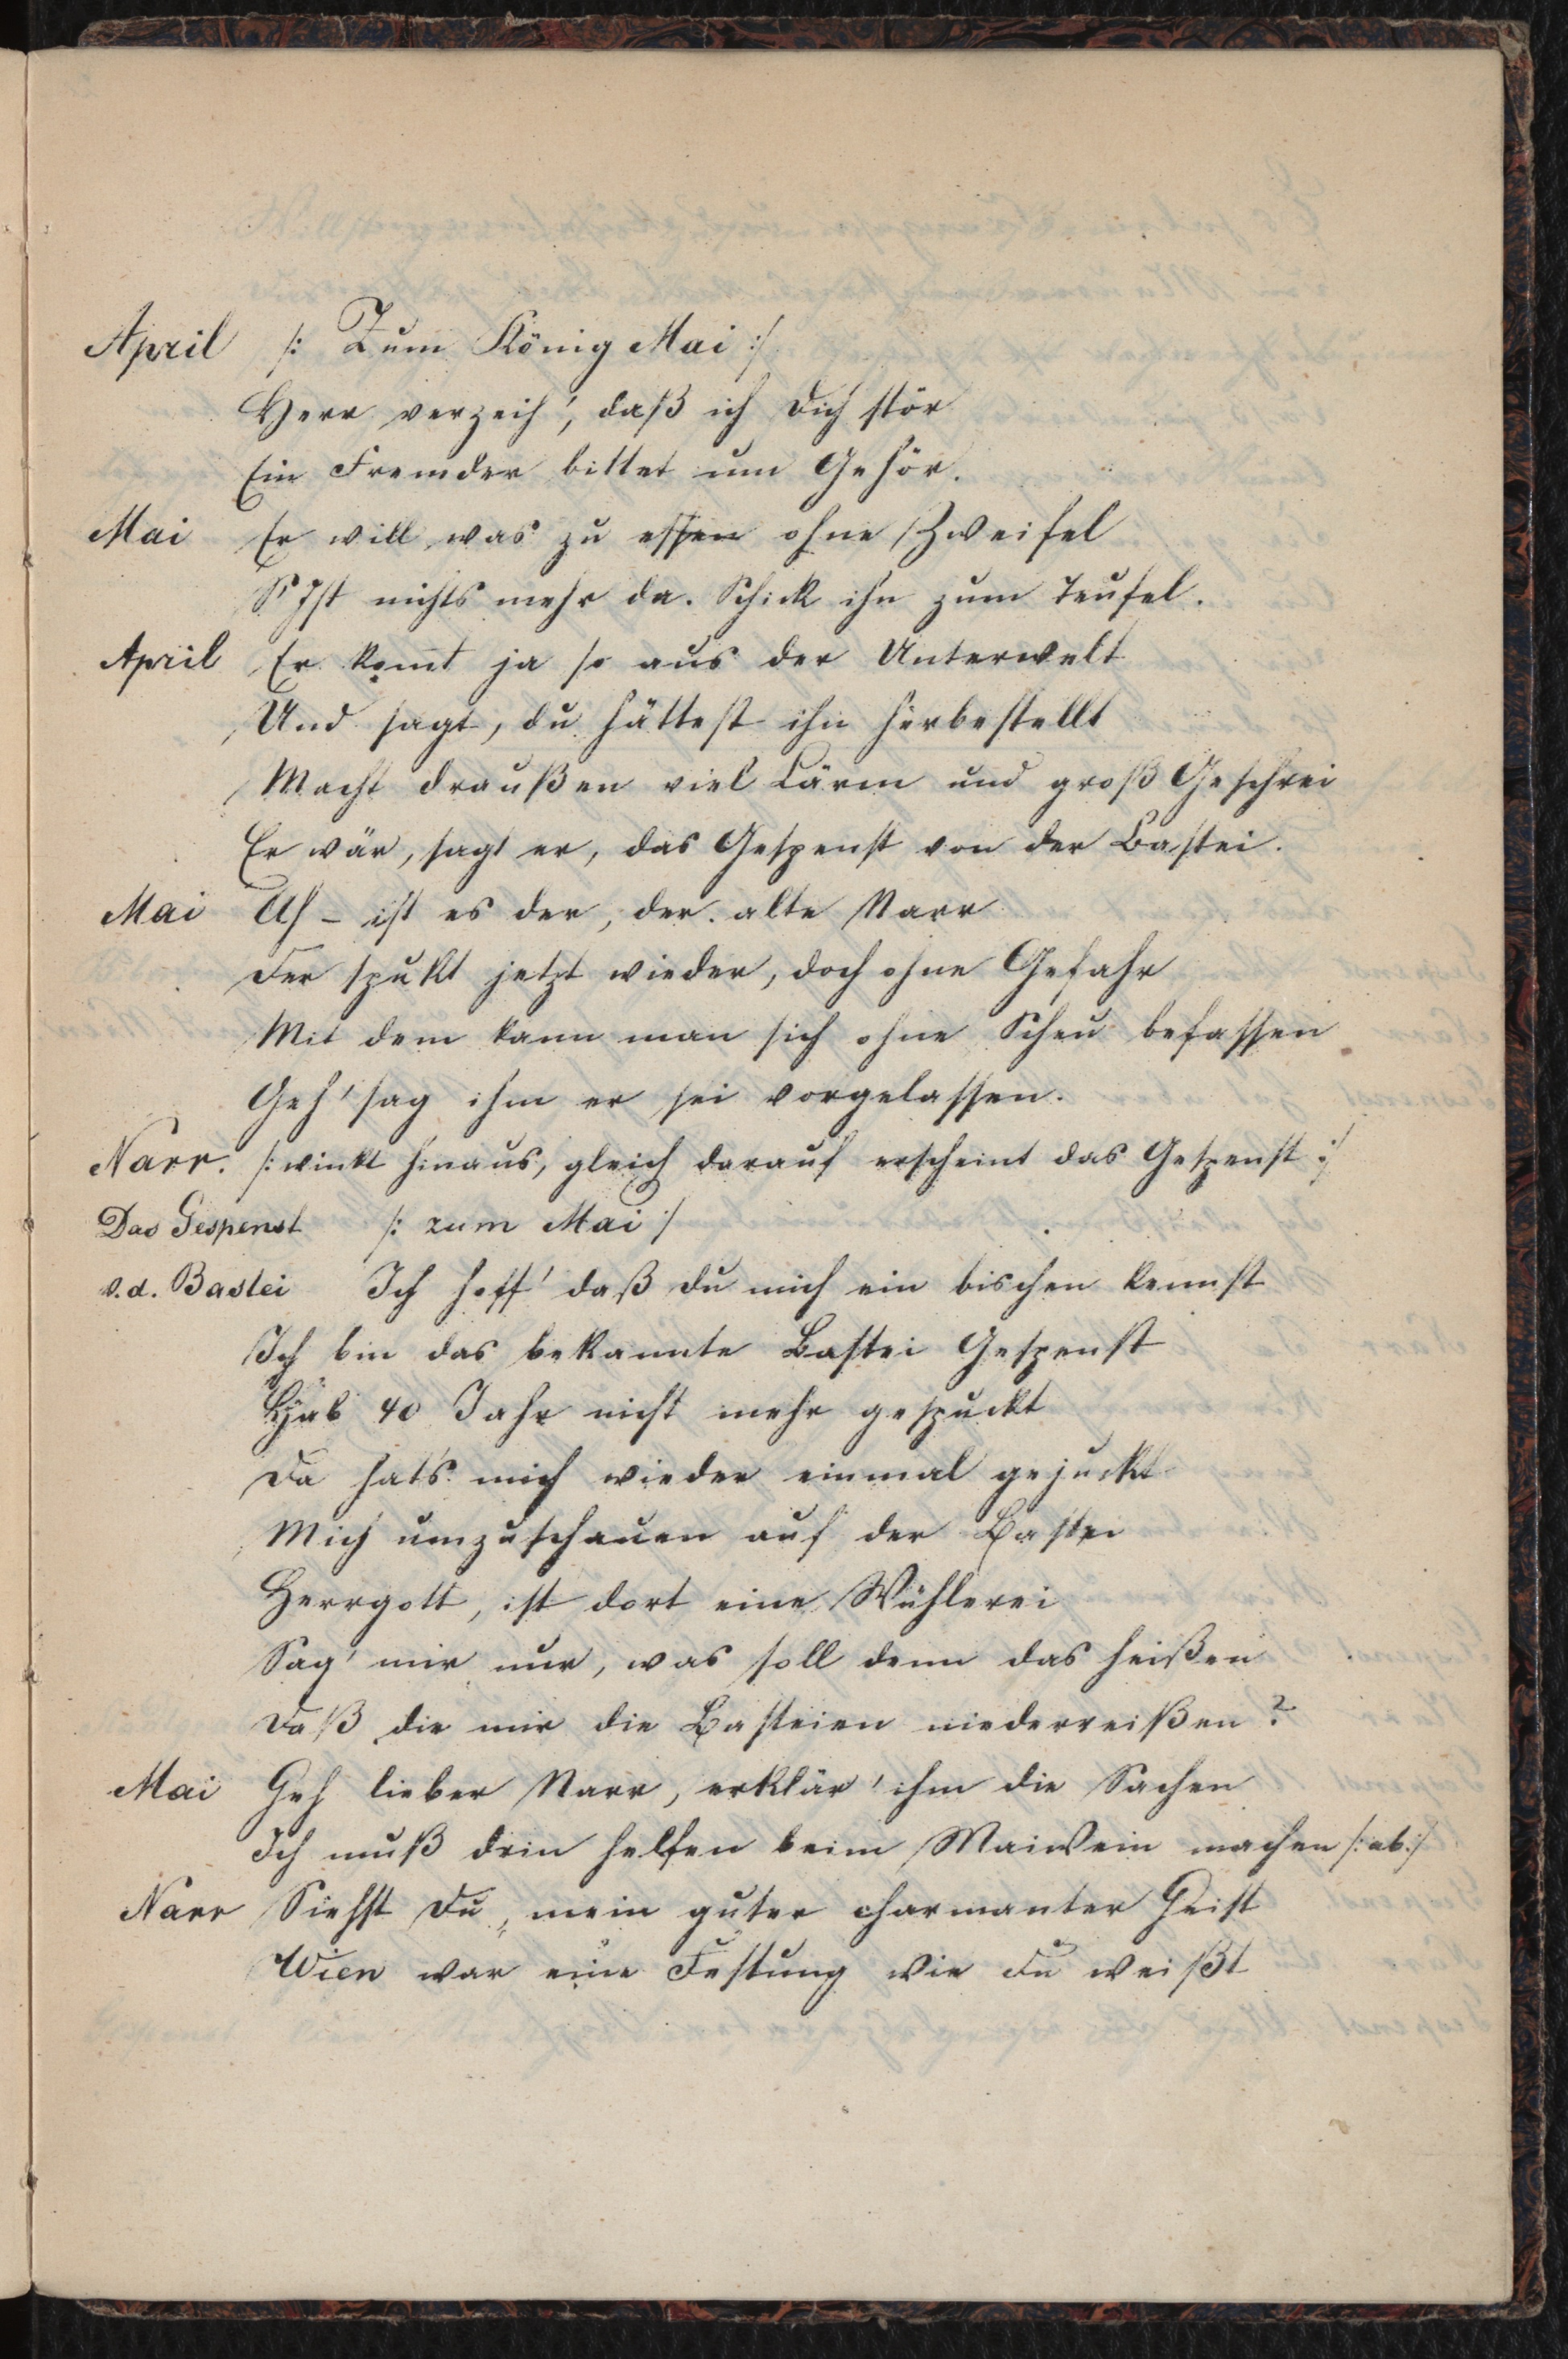 April /: Zum König Mai :/
Herr verzeih', daß ich Dich stör
Ein Fremder bittet um Gehör.
Mai Er will was zu essen ohne Zweifel
S'Ist nichts mehr da. Schick ihn zum Teufel.
April Er kom̄t ja so aus der Unterwelt
Und sagt, du hättest ihn herbestellt
Macht draußen viel Lärm und groß Geschrei
Er wär, sagt er, das Gespenst von der Bastei.
Mai Ah – ist es der, der alte Narr
Der spukt jetzt wieder, doch ohne Gefahr
Mit dem kann man sich ohne Scheu befassen
Geh' sag ihm er sei vorgelassen.
Narr. /: winkt hinaus, gleich darauf erscheint das Gespenst :/
Das Gespenst /: zum Mai :/
v. d. Bastei Ich hoff' daß du mich ein bischen kennst
Ich bin das bekannte Bastei Gespenst
Hab 40 Jahr nicht mehr gespuckt
Da hats mich wieder einmal gejuckt
Mich umzuschauen auf der Bastei
Herrgott, ist dort eine Wühlerei
Sag' mir nur, was soll denn das heißen
Daß die mir die Basteien niederreißen?
Mai Geh lieber Narr, erklär' ihm die Sachen
Ich muß drin helfen beim Maiwein machen /: ab :/
Narr Siehst Du, mein guter charmanter Geist
Wien war eine Festung wie Du weißt